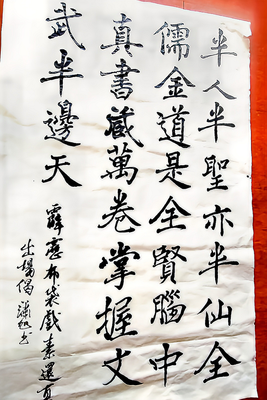 半人半聖亦半仙全
儒金道是全賢腦中
真書藏萬卷掌握文
武半邊天
霹靂布袋戲素還真
出場偈